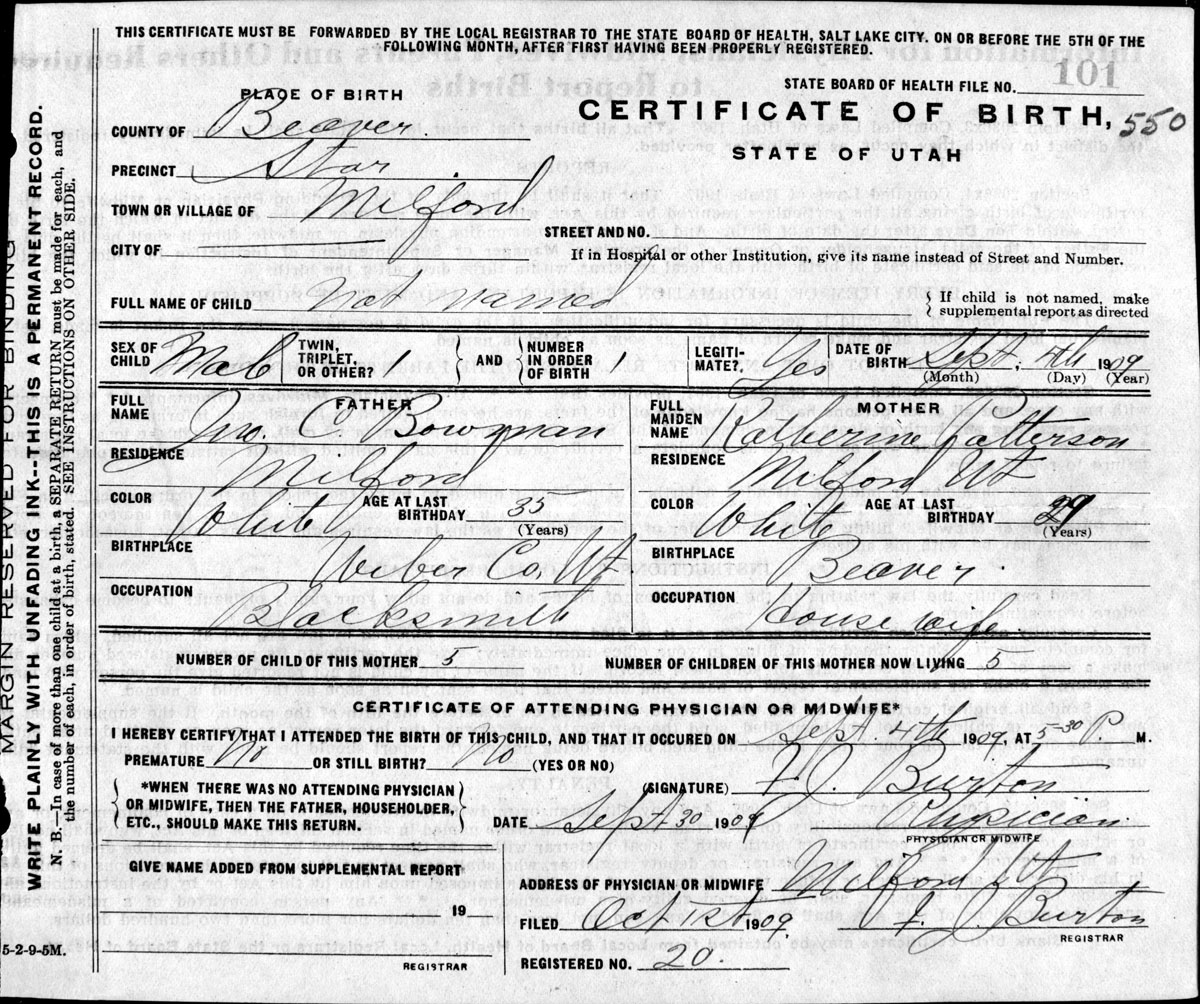 THIS CERTIFICATE MUST BE FORWARDED BY THE LOCAL REGISTRAR TO THE STATE BOARD OF HEALTH, SALT LAKE CITY. ON OR BEFORE THE 5TH OF THE
FOLLOWING MONTH, AFTER FIRST HAVING BEEN PROPERLY REGISTERED.
STATE BOARD OF HEALTH FILE NO. 101
PLACE OF BIRTH
CERTIFICATE OF BIRTH, 550
STATE OF UTAH
COUNTY OF Beaver
PRECINCT Star
TOWN OR VILLAGE OF Milford
STREET AND NO.
CITY OF
If in Hospital or other Institution, give its name instead of Street and Number.
FULL NAME OF CHILD Not Named
If child is not named, make
supplemental report as directed
SEX OF CHILD Male TWIN, TRIPLET, OR OTHER? 1 AND NUMBER IN ORDER OF BIRTH 1 LEGITI-MATE? Yes DATE OF BIRTH Sept. 4th 1909
(Month) (Day) (Year)
FATHER
FULL NAME Jno. C Bowman
RESIDENCE Milford
COLOR White AGE AT LAST BIRTHDAY 35
(Years)
BIRTHPLACE Weber Co. Ut
OCCUPATION Blacksmith
MOTHER
FULL MAIDEN NAME Katherine Patterson
RESIDENCE Milford Ut
COLOR White AGE AT LAST BIRTHDAY 29
(Years)
BIRTHPLACE Beaver.
OCCUPATION House wife
NUMBER OF CHILD OF THIS MOTHER 5 NUMBER OF CHILDREN OF THIS MOTHER NOW LIVING 5
CERTIFICATE OF ATTENDING PHYSICIAN OR MIDWIFE*
I HEREBY CERTIFY THAT I ATTENDED THE BIRTH OF THIS CHILD, AND THAT IT OCCURED ON Sept. 4th 1909, AT 5-30 P. M.
PREMATURE No OR STILL BIRTH? No (YES OR NO)
*WHEN THERE WAS NO ATTENDING PHYSICIAN
OR MIDWIFE, THEN THE FATHER, HOUSEHOLDER,
ETC.. SHOULD MAKE THIS RETURN.
(SIGNATURE) F. J. Burton
DATE Sept 30 1909 Physician.
PHYSICIAN OR MIDWIFE
GIVE NAME ADDED FROM SUPPLEMENTAL REPORT
19
REGISTRAR
ADDRESS OF PHYSICIAN OR MIDWIFE Milford Ut
FILED Oct 1st 1909. F. J. Burton
REGISTRAR
REGISTERED NO. 20.
5-2-9-5M.
MARGIN RESERVED FOR BINDING
WRITE PLAINLY WITH UNFADING INK--THIS IS A PERMANENT RECORD.
N. B.—In case of more than one child at a birth, a SEPARATE RETURN must be made for each, and
the number of each, in order of birth, stated. SEE INSTRUCTIONS ON OTHER SIDE.